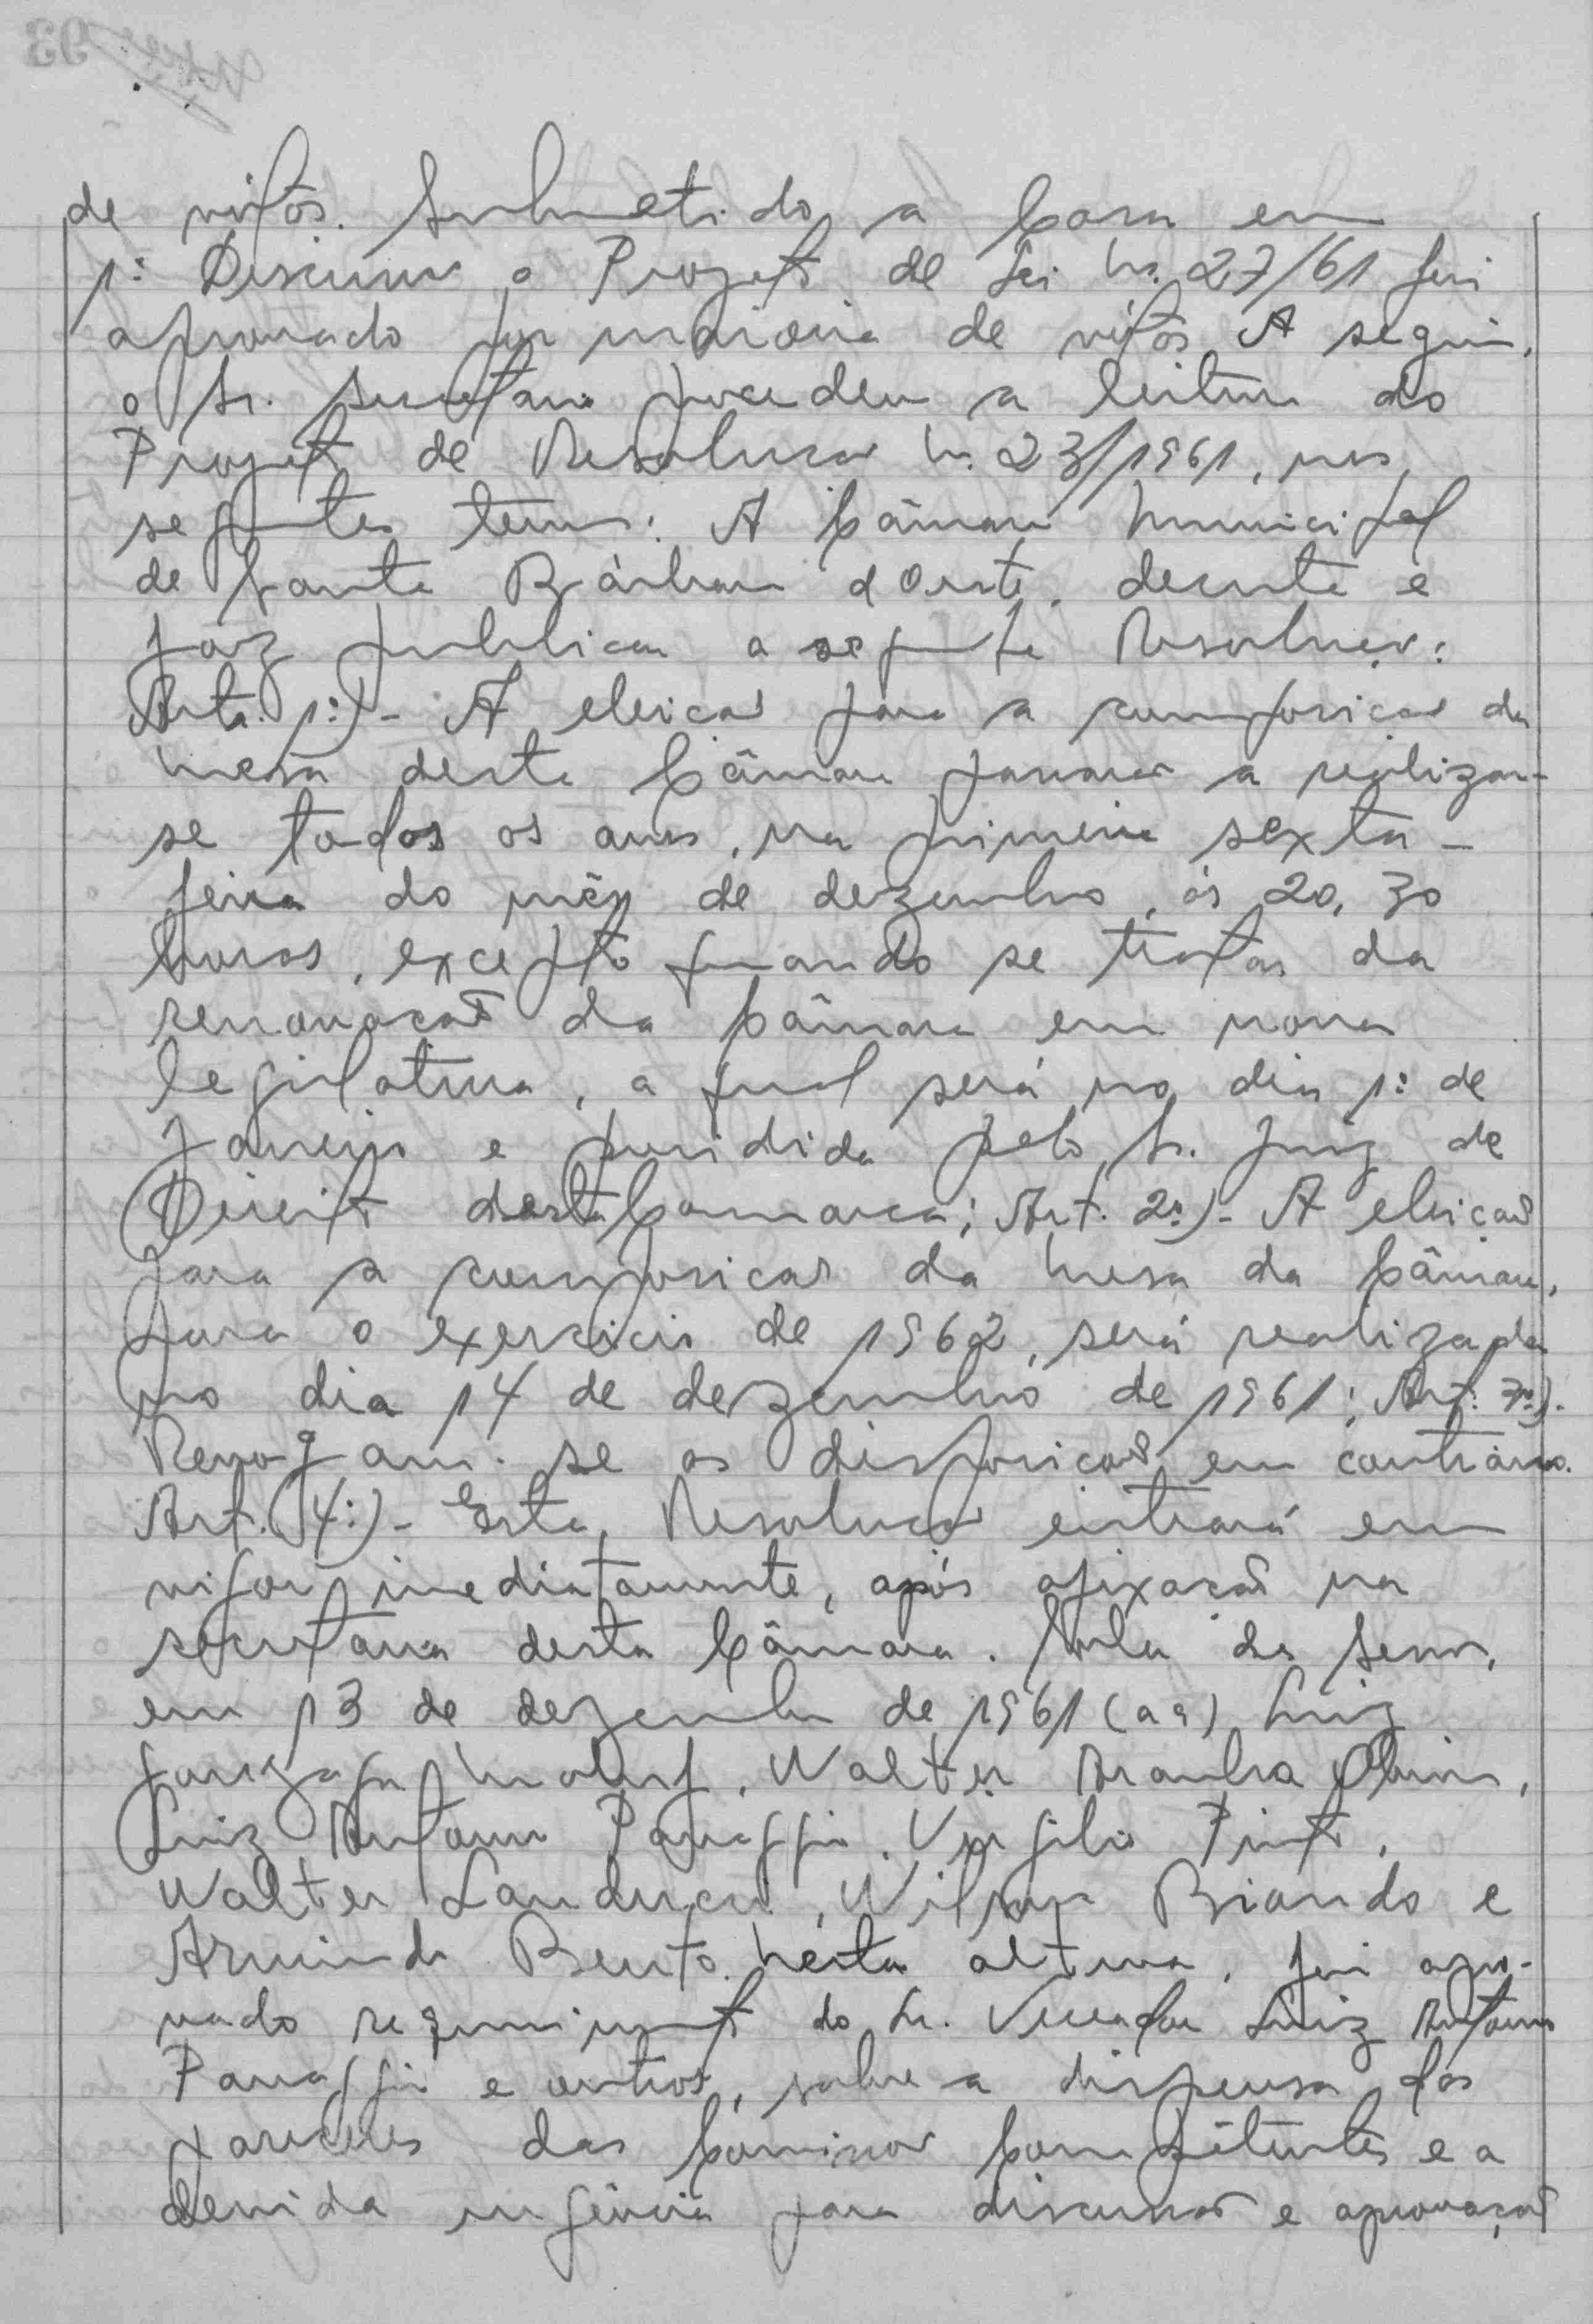 de votos. Submetido a Casa em
1ª Discussão o Projeto de Lei nº 27/61 foi
aprovado por maioria de votos. A seguir,
o Sr. Secretario procedeu a leitura do
Projeto de Resolucao nº 23/1961, nos
seguintes termos: A Câmara Municipal
de Santa Bárbara d'Oeste, decreta e
faz publicar a seguinte Resolução:
Art. 1º)- A eleicao para a composicao da
Mesa desta Câmara passará a realizar-
se todos os anos, na primeira sexta-
feira do mês de dezembro, ás 20,30
horas, excepto quando se tratar da
renovacao da Câmara em nova
legislatura, a qual será no dia 1º de
Janeiro e presidida pelo Sr. Juiz de
Direito desta Comarca; Art. 2º)- A eleiçao
para a composicao da Mesa da Câmara,
para o exercicio de 1962, será realizada
no dia 14 de dezembro de 1961; Art. 3º).
Revogam-se as disposicoes em contrário.
Art. 4º)- Esta Resolucao entrará em
vigor imediatamente, após afixacao na
secretaria desta Câmara. Sala das Sessoes,
em 13 de dezembro de 1961 (aa) Luiz
Gonzaga Maluf, Walter Aranha
Luiz Antonio Panaggio, Virgilio Pinto,
Walter Landucci, Wilson Biondo e
Armindo Bento. Nésta altura, foi apro-
vado requerimento do Sr. Vereador Luiz Antonio
Panaggio e outros, sobre a dispensa dos
pareceres das Comissoes Compétentes e a
devida urgência para discussao e aprovaçao